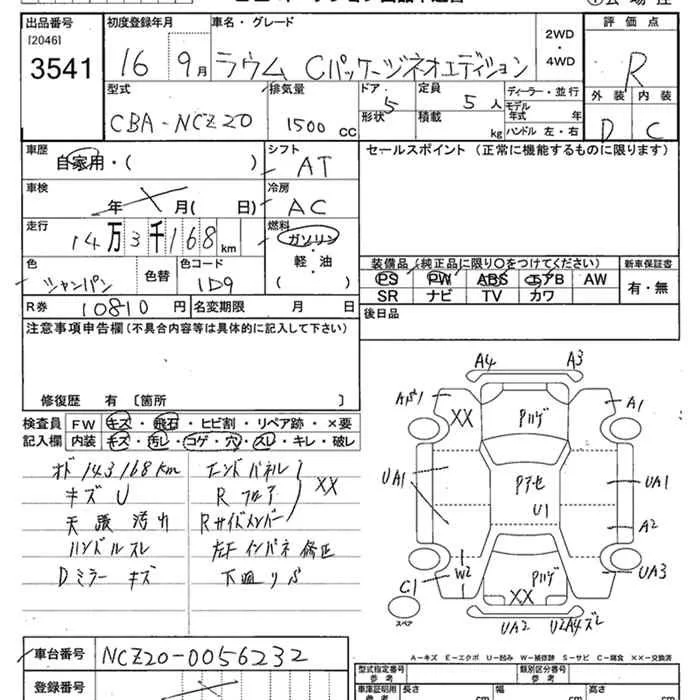 出品番号
[2046]
3541
初度登録年月
16 9月
車名・グレード
ラウム Cパッケージネオエディション
2WD
・
4WD
評価点
R
外装 内装
D C
型式
CBA-NCZ20
排気量
1500 CC
ドア 5
形状
定員 5人
積載 kg
ディーラー・並行
モデル年式 年
ハンドル 左・右
車歴
自家用・( )
シフト
AT
セールスポイント (正常に機能するものに限ります)
車検
年 月( 日)
冷房
AC
走行
14万3千168km
燃料
ガソリン
軽・油
( )
色
シャンパン
色替
色コード
1D9
装備品(純正品に限り○をつけてください)
新車保証書
PS PW ABS エアB AW
SR ナビ TV カワ
有・無
R券 10810円
名変期限 月 日
後日品
注意事項申告欄(不具合内容等は具体的に記入して下さい)
修復歴 有〔箇所 〕
検査員
記入欄
FW キズ・飛石・ヒビ割・リペア跡・×要
内装 キズ・汚レ・コゲ・穴・スレ・キレ・破レ
オド 143168km
キズ U
天張 汚れ
ハンドルスレ
Dミラー キズ
エンドパネル
Rフロア
Rサイドメンバー
XX
左Fインパネ修正
下廻りサビ
A4 A3
A1
XX
Pハゲ
UA1
Pアセ
U1
UA1
A2
W2
C1
Pハゲ
XX
UA3
UA2 U2A4ズレ
スペア
A=キズ E=エクボ U=凹み W=補修跡 S=サビ C=腐食 XX=交換済
車台番号
NCZ20-0056232
登録番号
型式指定番号
参考
類別区分番号
参考
車庫証明用
参考
長さ cm
幅 cm
高さ cm